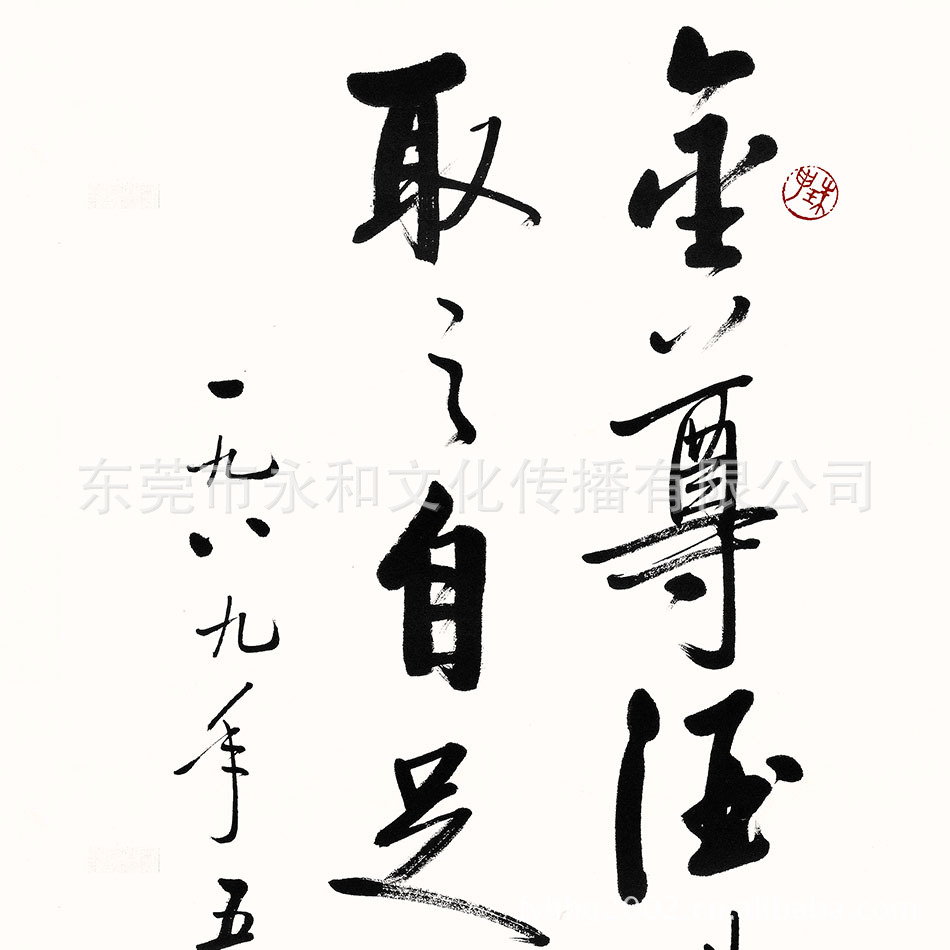 金尊酒
取之自足
一九八九年五
东莞市永和文化传播有限公司